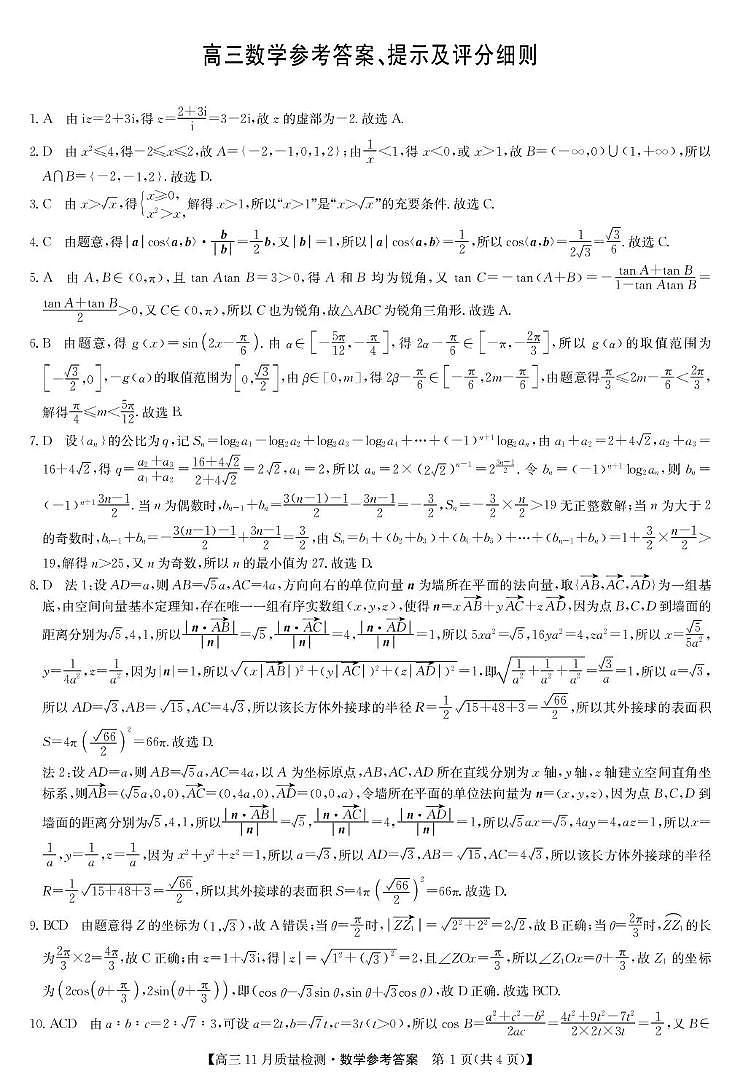 高三数学参考答案、提示及评分细则
1. A 由 iz=2+3i,得 z=\frac{2+3i}{i}=3-2i,故 z 的虚部为-2. 故选 A.
2. D 由 x²≤4,得-2≤x≤2,故 A={-2,-1,0,1,2};由\frac{1}{x}<1,得 x<0,或 x>1,故 B=(-∞,0)∪(1,+∞),所以
A∩B={-2,-1,2}. 故选 D.
3. C 由 x>√x,得{x≥0, x²>x, 解得 x>1,所以“x>1”是“x>√x”的充要条件. 故选 C.
4. C 由题意,得|a|cos⟨a,b⟩·\frac{b}{|b|}=\frac{1}{2}b,又|b|=1,所以|a|cos⟨a,b⟩=\frac{1}{2},所以 cos⟨a,b⟩=\frac{1}{2√3}=\frac{√3}{6}. 故选 C.
5. A 由 A,B∈(0,π),且 tan Atan B=3>0,得 A 和 B 均为锐角,又 tan C=-tan(A+B)=-\frac{tan A+tan B}{1-tan Atan B}=
\frac{tan A+tan B}{2}>0,又 C∈(0,π),所以 C 也为锐角,故△ABC 为锐角三角形. 故选 A.
6. B 由题意,得 g(x)=sin(2x-\frac{π}{6}). 由 α∈[-\frac{5π}{12},-\frac{π}{4}],得 2α-\frac{π}{6}∈[-π,-\frac{2π}{3}],所以 g(α)的取值范围为
[-\frac{√3}{2},0],-g(α)的取值范围为[0,\frac{√3}{2}],由 β∈[0,m],得 2β-\frac{π}{6}∈[-\frac{π}{6},2m-\frac{π}{6}],由题意得\frac{π}{3}≤2m-\frac{π}{6}<\frac{2π}{3},
解得\frac{π}{4}≤m<\frac{5π}{12}. 故选 B.
7. D 设{aₙ}的公比为 q,记 Sₙ=log₂a₁-log₂a₂+log₂a₃-log₂a₄+…+(-1)ⁿ⁺¹log₂aₙ,由 a₁+a₂=2+4√2,a₂+a₃=
16+4√2,得 q=\frac{a₂+a₃}{a₁+a₂}=\frac{16+4√2}{2+4√2}=2√2,a₁=2,所以 aₙ=2×(2√2)ⁿ⁻¹=2^{\frac{3n-1}{2}}. 令 bₙ=(-1)ⁿ⁺¹log₂aₙ,则 bₙ=
(-1)ⁿ⁺¹\frac{3n-1}{2}. 当 n 为偶数时,bₙ₋₁+bₙ=\frac{3(n-1)-1}{2}-\frac{3n-1}{2}=-\frac{3}{2},Sₙ=-\frac{3}{2}×\frac{n}{2}>19 无正整数解;当 n 为大于 2
的奇数时,bₙ₋₁+bₙ=-\frac{3(n-1)-1}{2}+\frac{3n-1}{2}=\frac{3}{2},由 Sₙ=b₁+(b₂+b₃)+(b₄+b₅)+…+(bₙ₋₁+bₙ)=1+\frac{3}{2}×\frac{n-1}{2}>
19,解得 n>25,又 n 为奇数,所以 n 的最小值为 27. 故选 D.
8. D 法 1:设 AD=a,则 AB=√5a,AC=4a,方向向右的单位向量 n 为墙所在平面的法向量,取{\overrightarrow{AB},\overrightarrow{AC},\overrightarrow{AD}}为一组基
底,由空间向量基本定理知,存在唯一一组有序实数组(x,y,z),使得 n=x\overrightarrow{AB}+y\overrightarrow{AC}+z\overrightarrow{AD},因为点 B,C,D 到墙面的
距离分别为√5,4,1,所以\frac{|n·\overrightarrow{AB}|}{|n|}=√5,\frac{|n·\overrightarrow{AC}|}{|n|}=4,\frac{|n·\overrightarrow{AD}|}{|n|}=1,所以 5xa²=√5,16ya²=4,za²=1,所以 x=\frac{√5}{5a²},
y=\frac{1}{4a²},z=\frac{1}{a²},因为|n|=1,所以\sqrt{(x|\overrightarrow{AB}|)²+(y|\overrightarrow{AC}|)²+(z|\overrightarrow{AD}|)²}=1,即\sqrt{\frac{1}{a²}+\frac{1}{a²}+\frac{1}{a²}}=\frac{√3}{a}=1,所以 a=√3,
所以 AD=√3,AB=√15,AC=4√3,所以该长方体外接球的半径 R=\frac{1}{2}\sqrt{15+48+3}=\frac{√66}{2},所以其外接球的表面积
S=4π(\frac{√66}{2})²=66π. 故选 D.
法 2:设 AD=a,则 AB=√5a,AC=4a,以 A 为坐标原点,AB,AC,AD 所在直线分别为 x 轴,y 轴,z 轴建立空间直角坐
标系,则\overrightarrow{AB}=(√5a,0,0),\overrightarrow{AC}=(0,4a,0),\overrightarrow{AD}=(0,0,a),令墙所在平面的单位法向量为 n=(x,y,z),因为点 B,C,D 到
墙面的距离分别为√5,4,1,所以\frac{|n·\overrightarrow{AB}|}{|n|}=√5,\frac{|n·\overrightarrow{AC}|}{|n|}=4,\frac{|n·\overrightarrow{AD}|}{|n|}=1,所以√5ax=√5,4ay=4,az=1,所以 x=
\frac{1}{a},y=\frac{1}{a},z=\frac{1}{a},因为 x²+y²+z²=1,所以 a=√3,所以 AD=√3,AB=√15,AC=4√3,所以该长方体外接球的半径
R=\frac{1}{2}\sqrt{15+48+3}=\frac{√66}{2},所以其外接球的表面积 S=4π(\frac{√66}{2})²=66π. 故选 D.
9. BCD 由题意得 Z 的坐标为(1,√3),故 A 错误;当 θ=\frac{π}{2}时,|\overrightarrow{ZZ₁}|=\sqrt{2²+2²}=2√2,故 B 正确;当 θ=\frac{2π}{3}时,\overset{\frown}{ZZ₁}的长
为\frac{2π}{3}×2=\frac{4π}{3},故 C 正确;由 z=1+√3i,得|z|=\sqrt{1²+(√3)²}=2,且∠ZOx=\frac{π}{3},所以∠Z₁Ox=θ+\frac{π}{3},故 Z₁ 的坐标
为(2cos(θ+\frac{π}{3}),2sin(θ+\frac{π}{3})),即(cos θ-√3sin θ,sin θ+√3cos θ),故 D 正确. 故选 BCD.
10. ACD 由 a∶b∶c=2∶√7∶3,可设 a=2t,b=√7t,c=3t(t>0),所以 cos B=\frac{a²+c²-b²}{2ac}=\frac{4t²+9t²-7t²}{2×2t×3t}=\frac{1}{2},又 B∈
【高三 11 月质量检测·数学参考答案 第 1 页(共 4 页)】